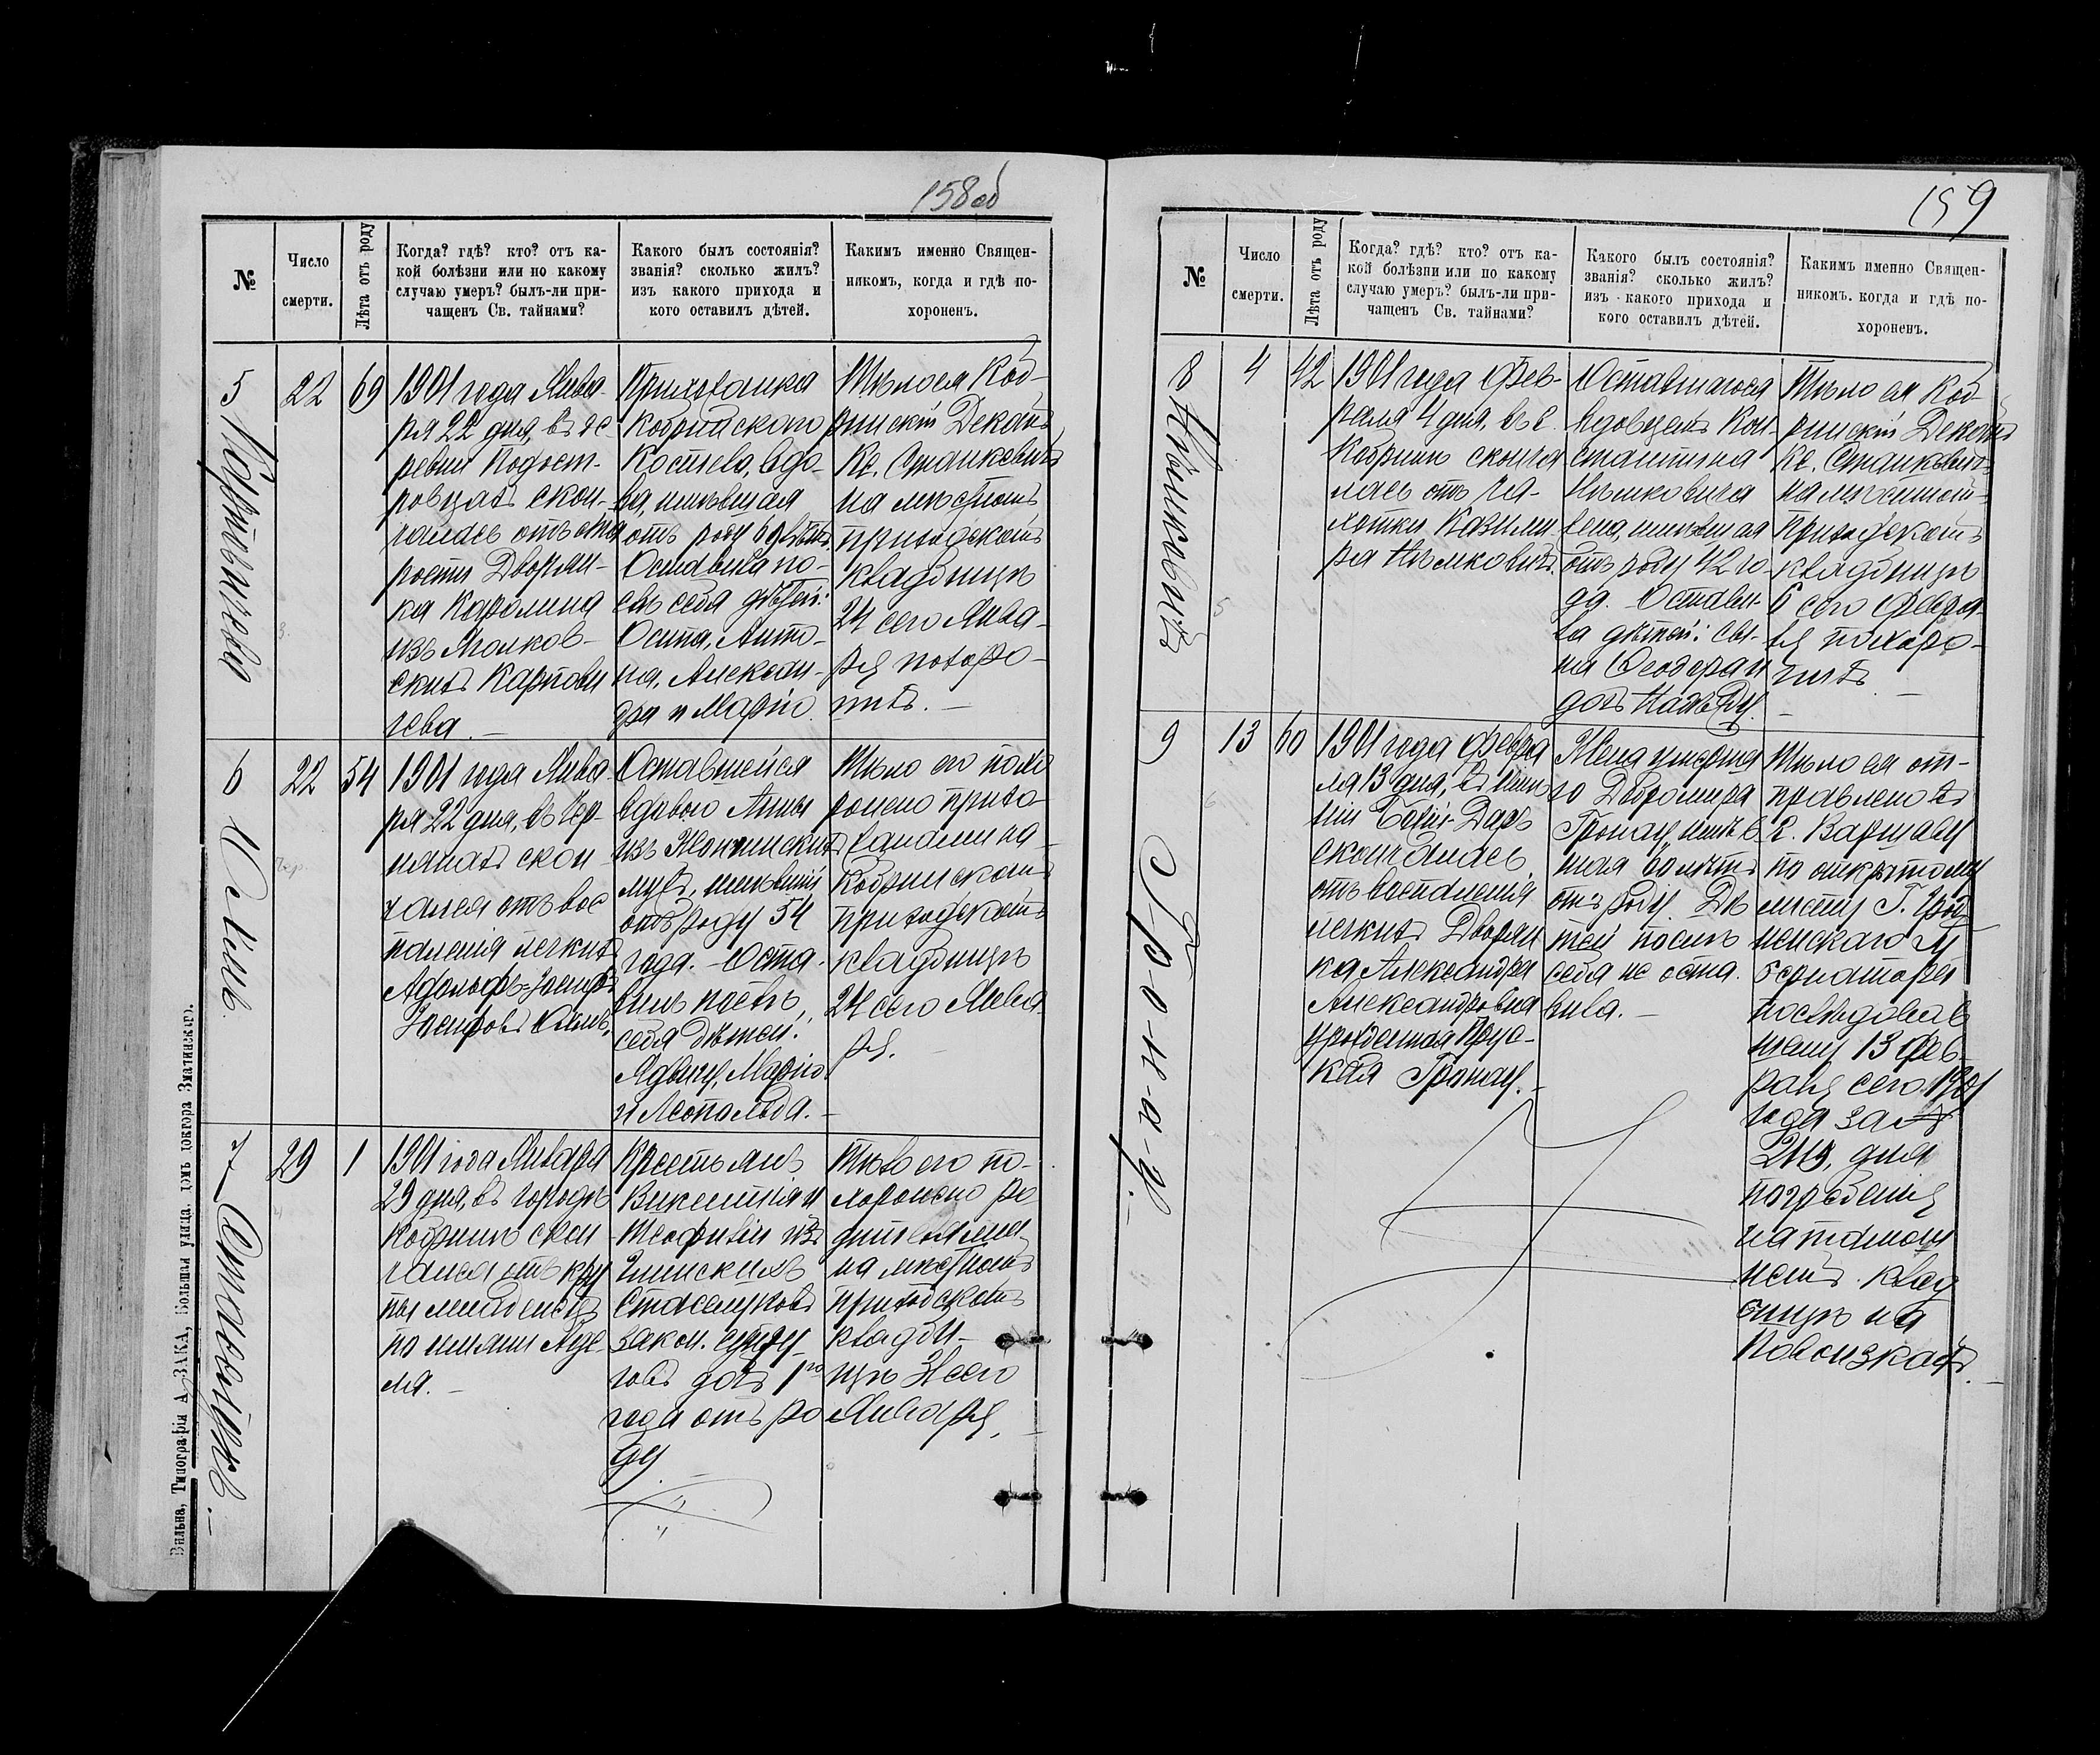 158об
№
Число
смерти.
Лѣта отъ роду
Когда? гдѣ? кто? отъ ка-
кой болѣзни или по какому
случаю умеръ? былъ-ли при-
чащенъ Св. тайнами?
Какого былъ состоянія?
званія? сколько жилъ?
изъ какого прихода и
кого оставилъ дѣтей.
Какимъ именно Священ-
никомъ, когда и гдѣ по-
хороненъ.
5
22
69
1901 года Янва-
ря 22 дня, въ де-
ревни
скон-
чалась отъ ста
рости Дворян-
ка Каролина
изъ
скихъ Карпови
чева.
Прихожанка
Кобринскаго
Костела, вдо-
ва, имѣвшая
отъ роду 69 лѣтъ.
Оставила по-
слѣ себя дѣтей:
Осипа, Анто-
на, Алексан-
дра и Марію.
Тѣло ея Коб-
ринскій Деканъ
Кс. Станкевичъ
на мѣстномъ
приходскомъ
кладбищѣ
24 сего Янва-
ря похоро-
нилъ.
6
22
54
1901 года Янва
ря 22 дня, въ
скон
чался отъ вос
паленія легкихъ
Адольфъ-Іосифъ
Іосифовъ
Оставшейся
вдовою Анны
изъ
мужъ, имѣвшій
отъ роду 54
года. - Оста-
вилъ послѣ
себя дѣтей:
Ядвигу, Марію
и Леопольда.
Тѣло его похо
ронено прихо-
жанами на
Кобринскомъ
приходскомъ
кладбищѣ
24 сего Янва
ря.
7
29
1
1901 года Января
29 дня, въ городѣ
Кобринѣ скон
чался отъ кру
па младенецъ
по имени Ада
мъ.
Крестьянъ
Викентія и
Теофиліи изъ
закон. супру-
говъ
1го
года отъ ро
ду.
Тѣло его по-
хоронено ро
дителями
на мѣстномъ
приходскомъ
кладби-
щѣ 31 сего
Января.
Вильна, Типографія А. ЗАКА, Большая улица, домъ доктора Зматинскаго.
159
№
Число
смерти.
Лѣта отъ роду
Когда? гдѣ? кто? отъ ка-
кой болѣзни или по какому
случаю умеръ? былъ-ли при-
чащенъ Св. тайнами?
Какого былъ состоянія?
званія? сколько жилъ?
изъ какого прихода и
кого оставилъ дѣтей.
Какимъ именно Священ-
никомъ, когда и гдѣ по-
хороненъ.
8
Нѣмковичъ
4
42
1901 года Фев-
раля 4 дня, въ г.
Кобринѣ сконча
лась отъ ча-
хотки Казими-
ра Нѣмковичъ.
Оставшагося
вдовцемъ Кон-
стантина
Нѣмковича
жена, имѣвшая
отъ роду 42 го-
да. Остави-
ла дѣтей: сы-
на Ѳеодора и
дочь
Тѣло ея Коб-
ринскій Деканъ
Кс. Станкевичъ
на мѣстномъ
приходскомъ
кладбищѣ
6 сего Февра-
ля похоро-
нилъ.
9
Гронау.
13
60
1901 года Февра
ля 13 дня, въ имѣ
ніи Божій-Даръ
скончалась
отъ воспаленія
легкихъ Дворян
ка Александра
Александровна
урожденная Прус-
кая Гронау.
Жена умерша
го
Гронау, имѣв
шая 60 лѣтъ
отъ роду. Дѣ
тей послѣ
себя не оста-
вила.
Тѣло ея от-
правлено въ
г. Варшаву
по открытому
листу Г. Грод
ненскаго Гу
бернатора
послѣдовав
шему 13 фев-
раля сего 1901
года за №
213, для
погребенія
на тамош
немъ клад
бищѣ на
Повонзкахъ.